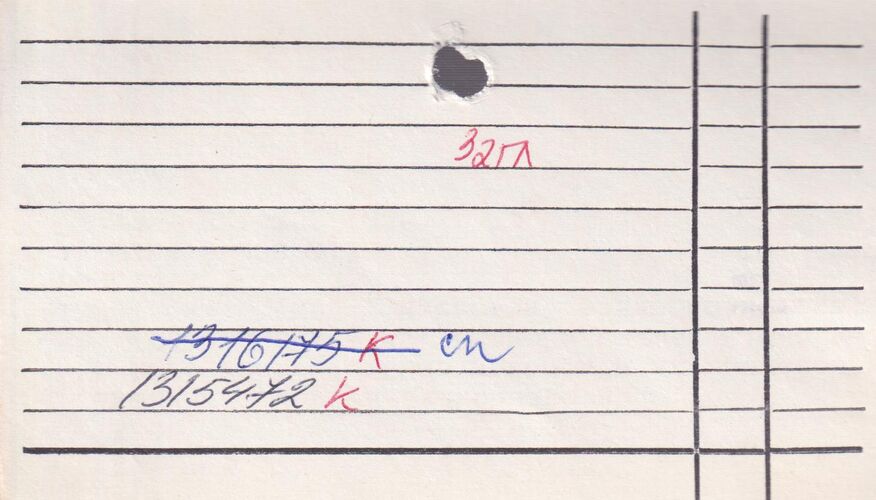 32гл
1316175 К сп
1315472 К